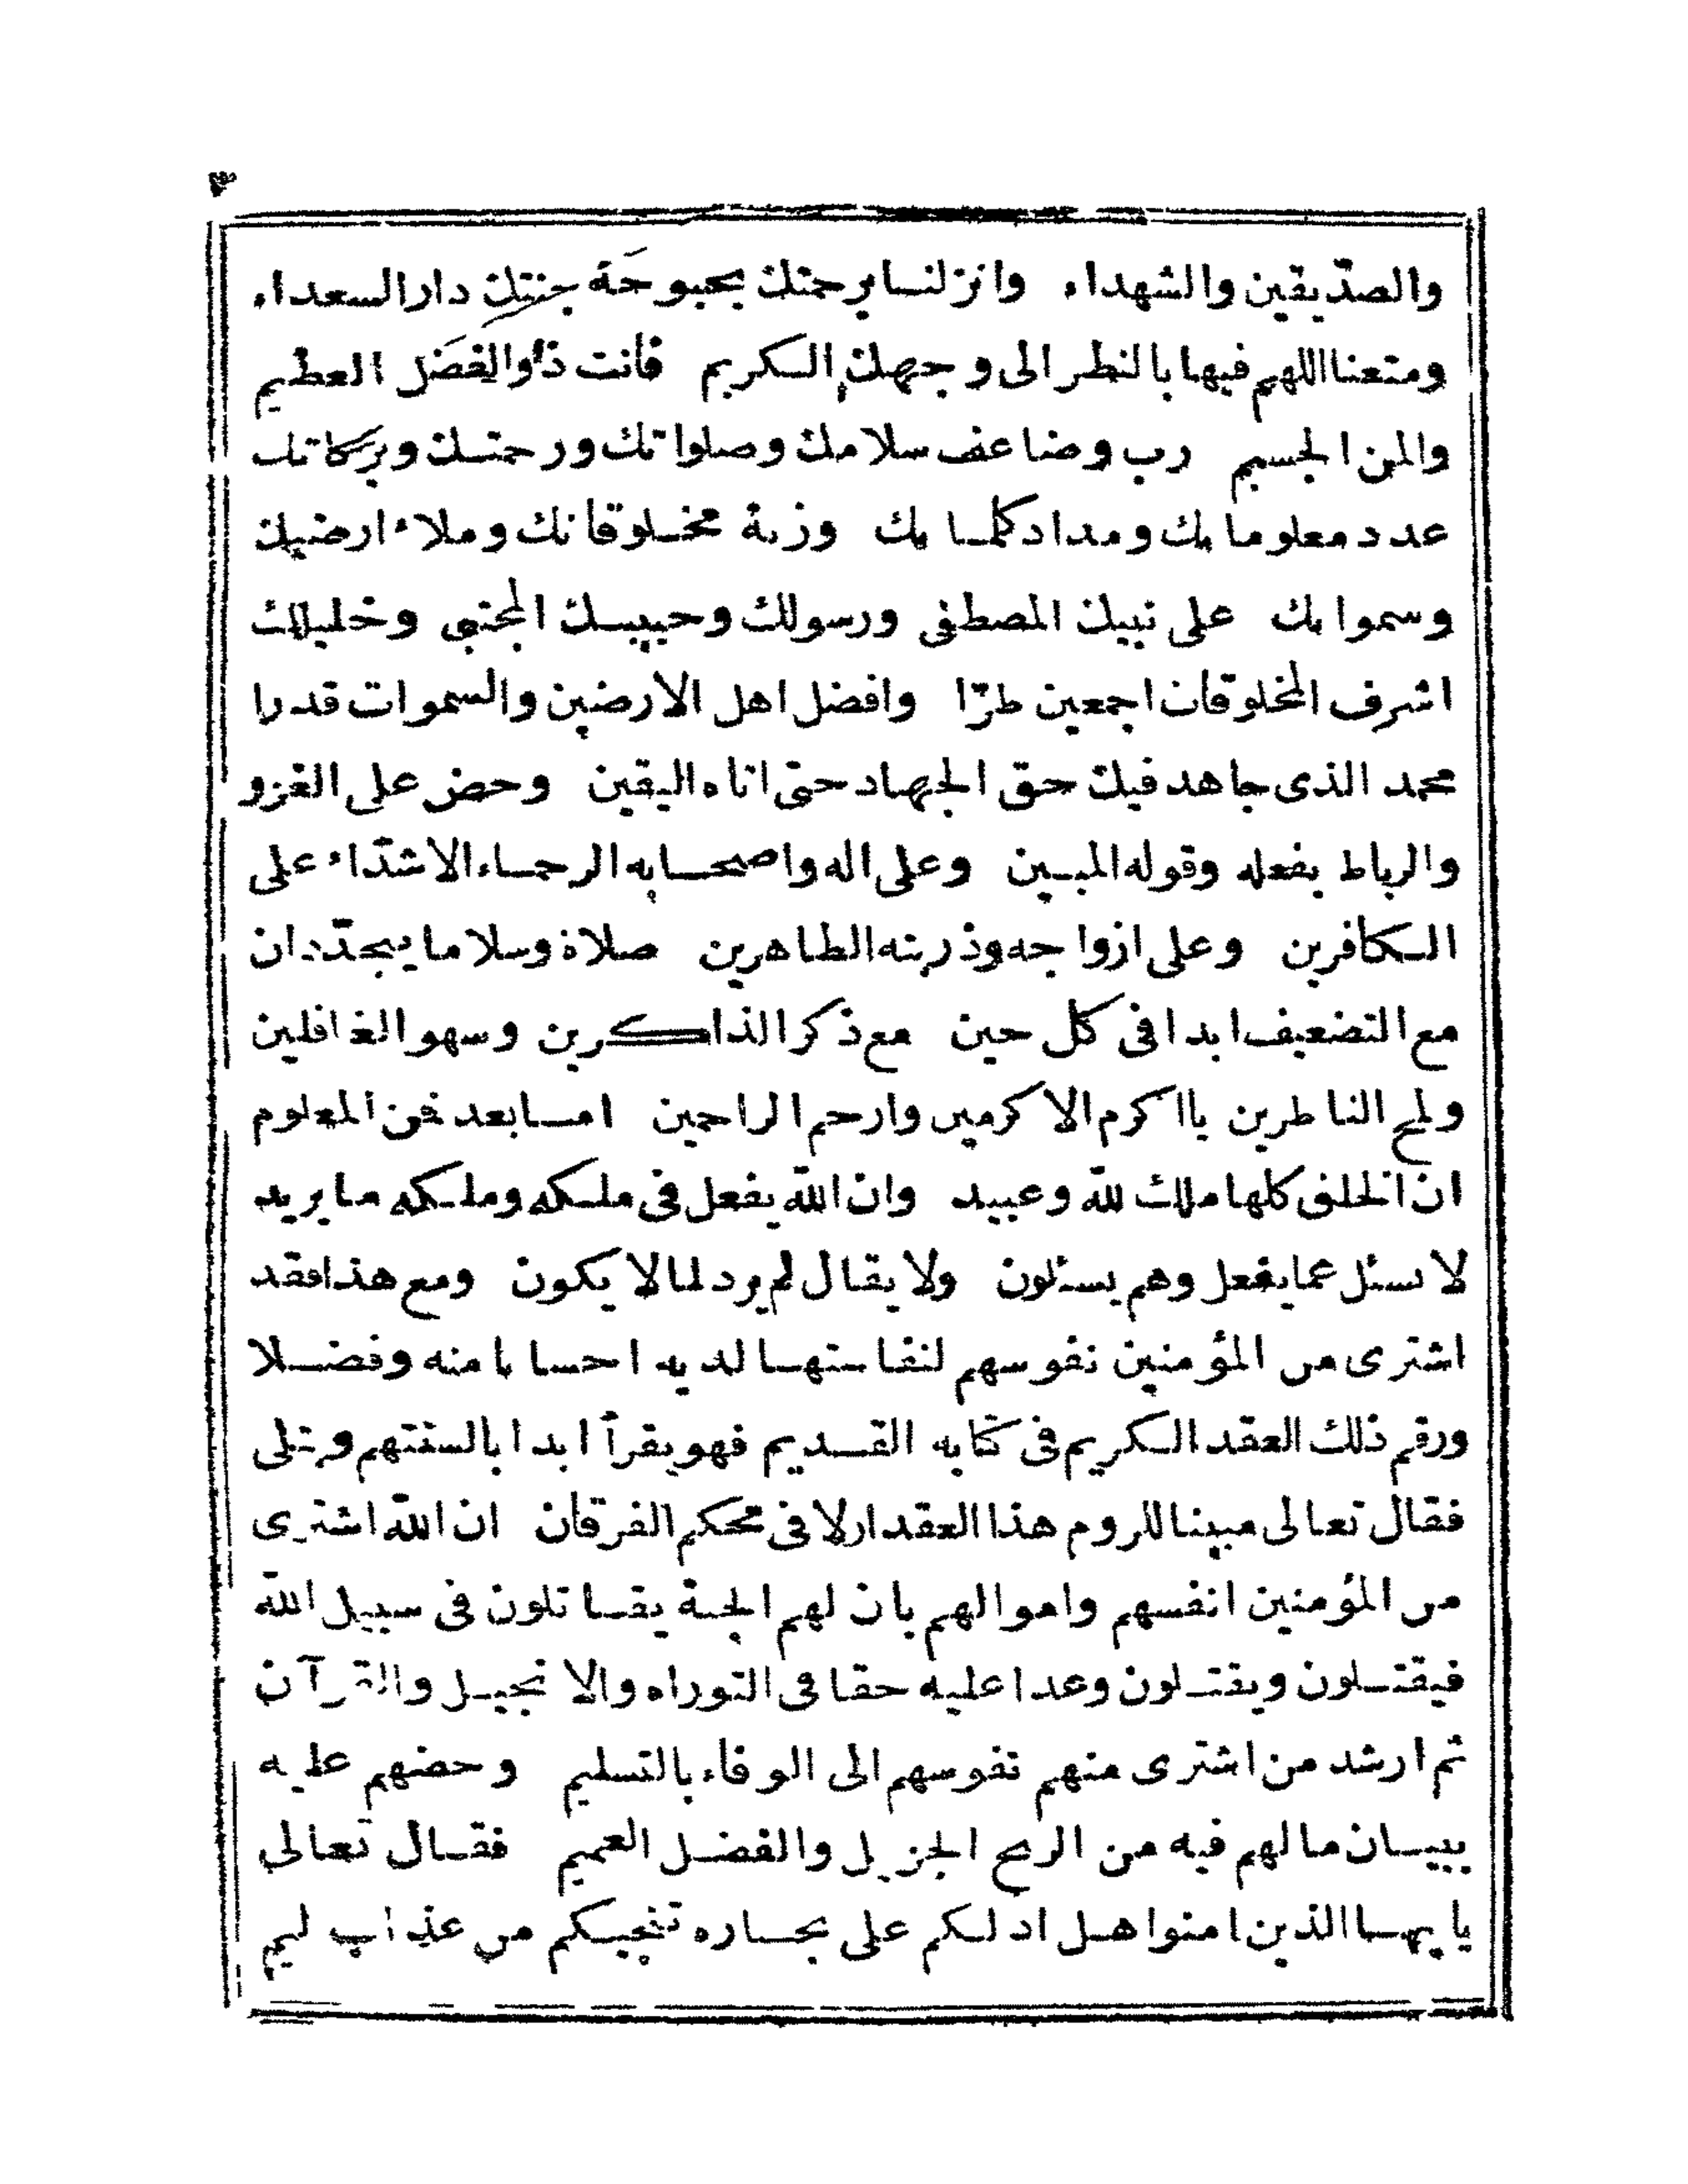 ٣
والصدّيقين والشهداء وانزلنا برحمتك بحبوحَة جنتك دار السعداء
ومتعنا اللهم فيها بالنظر الى وجهك الكريم فأنت ذو الفضَل العظيم
والمن الجسيم رب وضاعف سلامك وصلواتك ورحمتك وبركاتك
عدد معلوماتك ومداد كلماتك وزنة مخلوقاتك وملاء ارضيك
وسمواتك على نبيك المصطفى ورسولك وحبيبك المجتبى وخليلك
اشرف المخلوقات اجمعين طرّا وافضل اهل الارضين والسموات قدرا
محمد الذى جاهد فيك حق الجهاد حتى اتاه اليقين وحض على الغزو
والرباط بفعله وقوله المبين وعلى اله واصحابه الرحماء الاشدّاء على
الكافرين وعلى ازواجه وذريته الطاهرين صلاة وسلاما يتجدّدان
مع التضعيف ابدا فى كل حين مع ذكر الذاكرين وسهو الغافلين
ولمح الناظرين يا اكرم الاكرمين وارحم الراحمين امابعد فمن المعلوم
ان الخلق كلها ملك لله وعبيد وان الله يفعل فى ملكه وملكه ما يريد
لا يسئل عما يفعل وهم يسئلون ولا يقال لم يرد لما لا يكون ومع هذا فقد
اشترى من المؤمنين نفوسهم لنفاستها لديه احسانا منه وفضلا
ورقم ذلك العقد الكريم فى كتابه القديم فهو يقرأ ابدا بالسنتهم ويتلى
فقال تعالى مبينا للزوم هذا العقد ازلا فى محكم الفرقان ان الله اشترى
من المؤمنين انفسهم واموالهم بان لهم الجنة يقاتلون فى سبيل الله
فيقتلون ويقتلون وعدا عليه حقا فى التوراه والانجيل والقرآن
ثم ارشد من اشترى منهم نفوسهم الى الوفاء بالتسليم وحضهم عليه
ببيان ما لهم فيه من الربح الجزيل والفضل العميم فقال تعالى
يا يها الذين امنوا هل ادلكم على تجاره تنجيكم من عذاب ليم